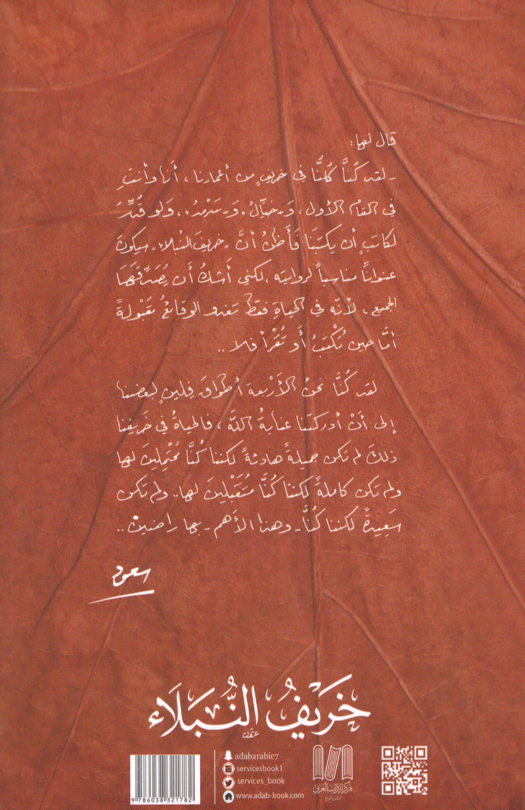 قال لها:
- لقد كُنَّا كُلُّنا في خريفٍ من أعمارنا، أنا وأنتِ
في المقام الأول، وَ«جبال» وَ«سَرْمَد»، ولو قُدِّرَ
لكاتبٍ أن يكتبنا فَأظنُّ أنَّ «خريف النبلاء» سيكون
عنواناً مناسباً لروايته، لكني أشكُ أن يُصَدِّقَهَا
الجميع، لأنَّه في الحياةِ فقط تغدو الوقائعُ مَقبولةً
أمَّا حين تُكْتَبُ أو تُقْرَأ فلا..
لقد كُنَّا نحنُ الأربعة أطواقَ فلينٍ لبعضنا
إلى أنْ أدركتنا عنايةُ اللَّه، فالحياةُ في خَريفنا
ذلكَ لم تكن جميلةً هادئةً لكننا كُنَّا مُحْتَمِلينَ لها
ولم تكن كاملةً لكننا كُنَّا مُتَقَبِّلينَ لها.. ولم تكن
سَعِيدَةً لكننا كُنَّا - وهذا الأهم - بها راضينْ..
سعود
خَرِيْفُ النُّبَلَاء
adabarabic7
servicesbook1
services_book
www.adab-book.com
9 786038 321782